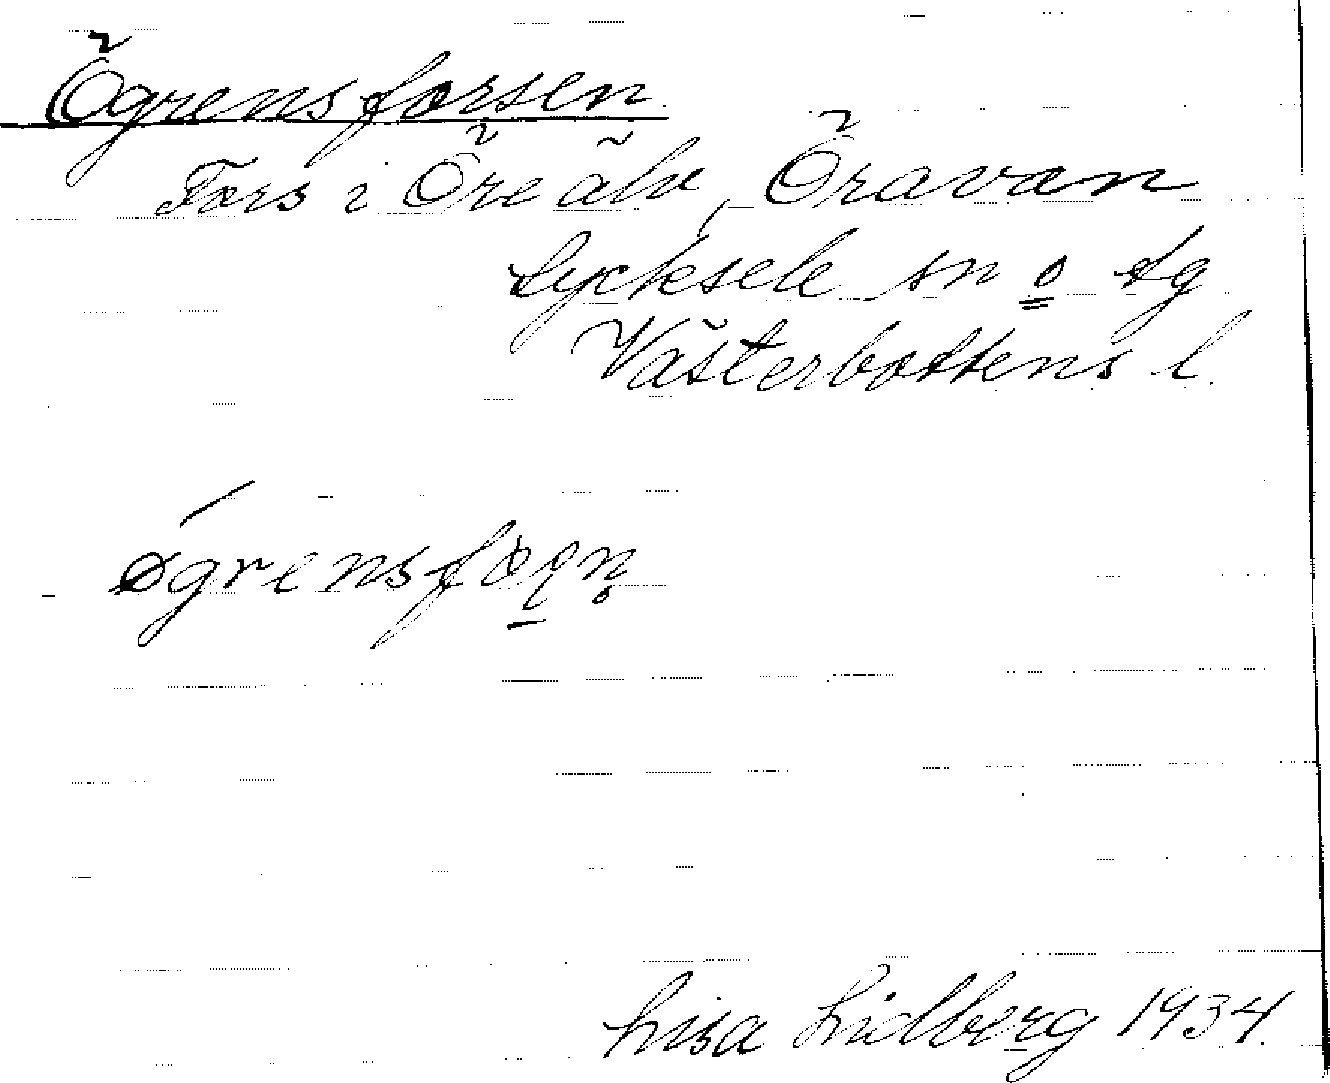 Ögrensforsen
Fors i Öre älv, Öravan
Lycksele sn o tg
Västerbottens l.
Lisa Lidberg 1934.